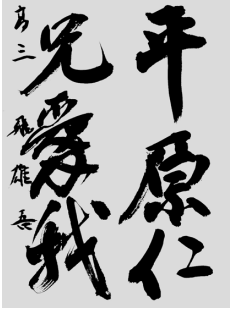 平原仁
兄愛我
高三 飛雄 吾